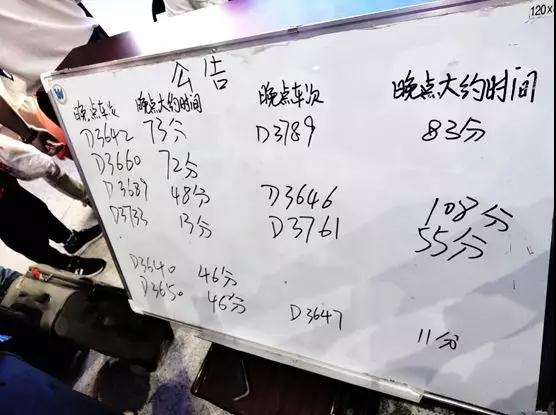 120×
公告
晚点车次 晚点大约时间 晚点车次 晚点大约时间
D3642 73分 D3789 83分
D3660 72分
D3689 48分 D3646 108分
D3733 13分 D3761 55分
D3640 46分
D3650 46分 D3647 11分